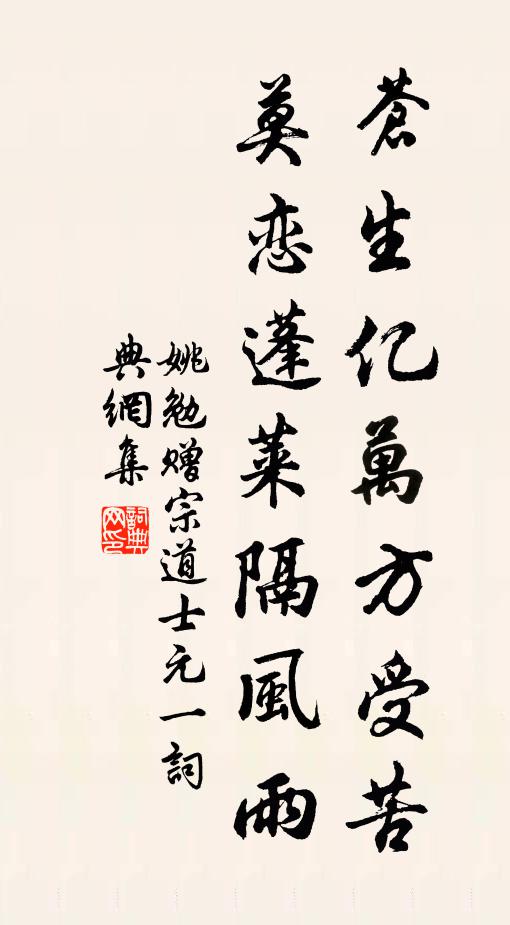 蒼生亿萬方受苦
莫恋蓬莱隔風雨
姚勉赠宗道士元一詞
典網集
詞典
网印